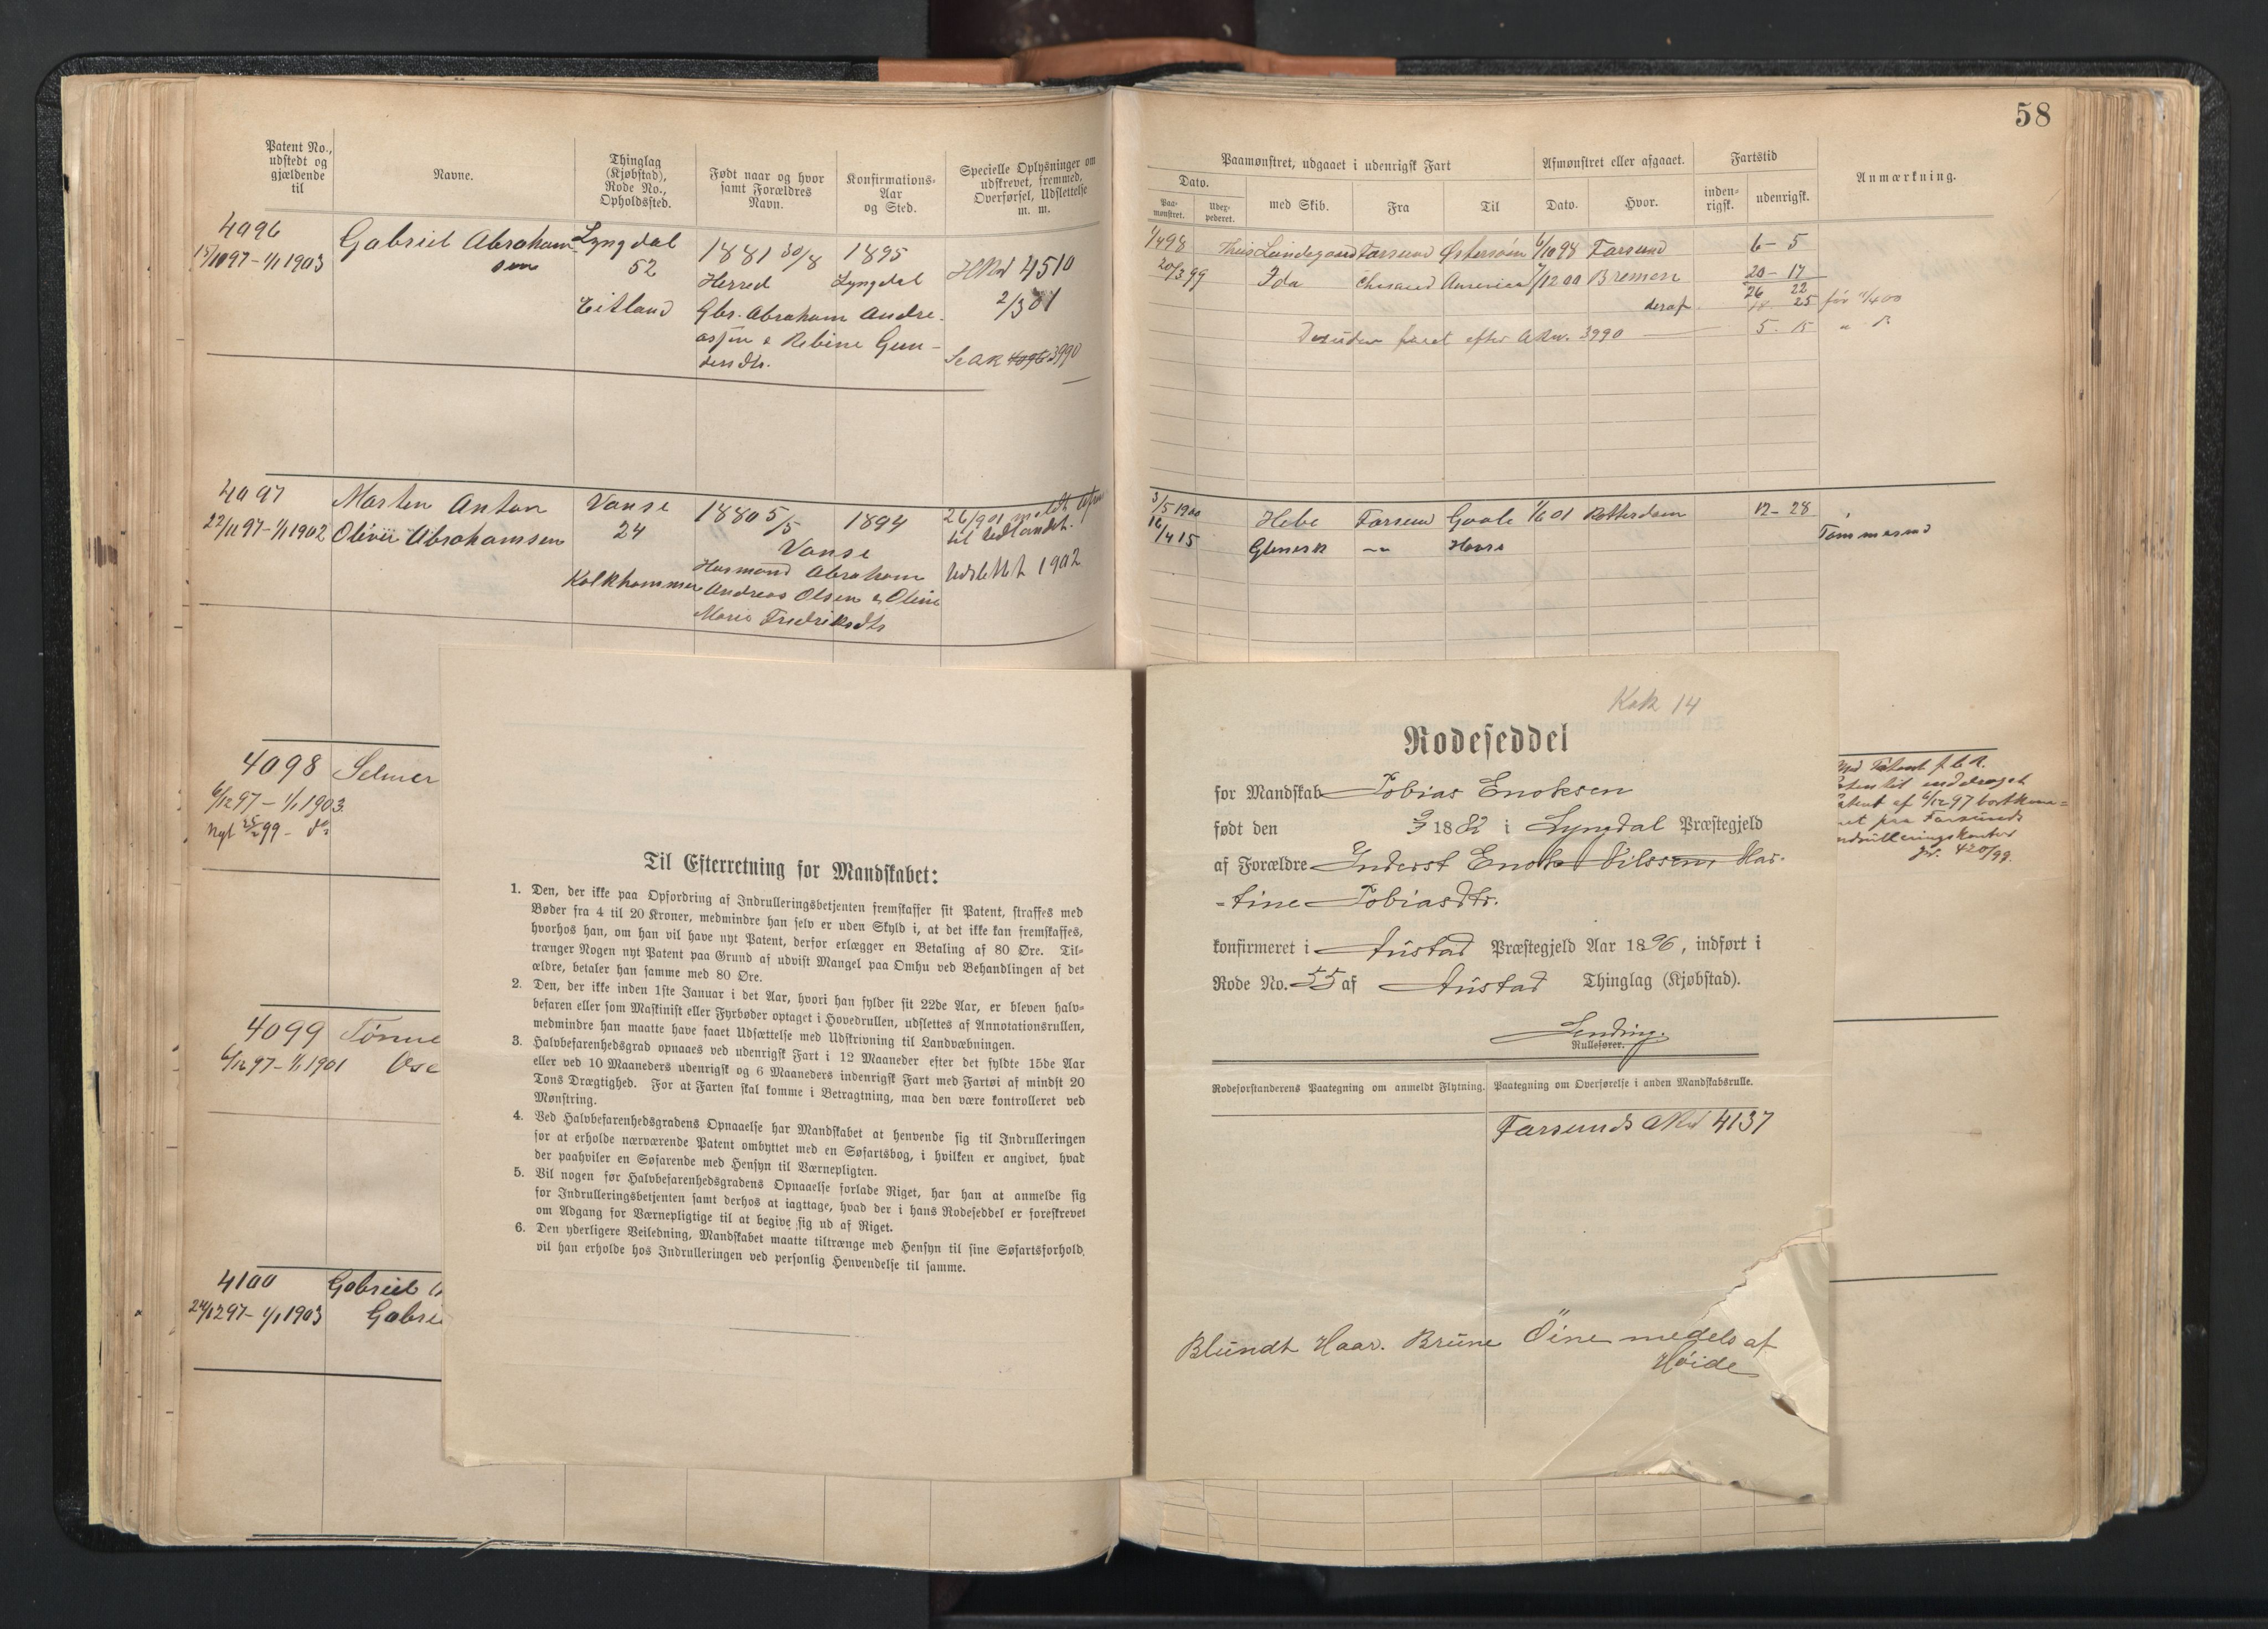 58
Patent No., udstedt og gjældende til
Navne.
Thinglag (Kjøbstad), Rode No., Opholdssted.
Født naar og hvor samt Forældres Navn.
Konfirmations-Aar og Sted.
Specielle Oplysninger om udskrevet, fremmed, Overførsel, Udslettelse m. m.
Paamønstret, udgaaet i udenrigsk Fart
Afmønstret eller afgaaet.
Fartstid
Anmærkning.
Dato.
Paa-mønstret.
Udex-pederet.
med Skib.
Fra
Til
Dato.
Hvor.
inden-rigsk.
udenrigsk.
4096
Gabriel Abraham
sen
Lyngdal
52
1881 30/8
1895
Herred
Lyngdal
4510
2/3 01
Eitland
Gbr. Abraham Andre-
assen & Rebine Gun-
3990
Farsund Østersøen
Farsund
6 - 5
Ida
America
Bremen
20 - 17
26 22
deraf
25
Desuden faret efter 3990
5 - 15
4097
22/11 97 - 1/1 1902
Morten Anton
Olivii Abrahamsen
Vanse
24
1880 5/5
Vanse
1894
26/9 01
til Udlandet.
Abraham
Udslettet 1902
Andreas Olsen & Oline
Marie Fredriksdtr
3/5 1900
Hebe
Farsund
Goole
Rotterdam
12 - 28
16/4 15
Tømmermd
4098
Selmer
6/12 97 - 1/1 1903.
4099
6/12 97 - 1/1 1901
4100
Gabriel
1/1 1903
Til Efterretning for Mandskabet:
1. Den, der ikke paa Opfordring af Indrulleringsbetjenten fremskaffer sit Patent, straffes med
Bøder fra 4 til 20 Kroner, medmindre han selv er uden Skyld i, at det ikke kan fremskaffes,
hvorhos han, om han vil have nyt Patent, derfor erlægger en Betaling af 80 Øre. Til-
trænger Nogen nyt Patent paa Grund af udvist Mangel paa Omhu ved Behandlingen af det
ældre, betaler han samme med 80 Øre.
2. Den, der ikke inden 1ste Januar i det Aar, hvori han fylder sit 22de Aar, er bleven halv-
befaren eller som Maskinist eller Fyrbøder optaget i Hovedrullen, udslettes af Annotationsrullen,
medmindre han maatte have faaet Udsættelse med Udskrivning til Landvæbningen.
3. Halvbefarenhedsgrad opnaaes ved udenrigsk Fart i 12 Maaneder efter det fyldte 15de Aar
eller ved 10 Maaneders udenrigsk og 6 Maaneders indenrigsk Fart med Fartøi af mindst 20
Tons Drægtighed. For at Farten skal komme i Betragtning, maa den være kontrolleret ved
Mønstring.
4. Ved Halvbefarenhedsgradens Opnaaelse har Mandskabet at henvende sig til Indrulleringen
for at erholde nærværende Patent ombyttet med en Søfartsbog, i hvilken er angivet, hvad
der paahviler en Søfarende med Hensyn til Værnepligten.
5. Vil nogen før Halvbefarenhedsgradens Opnaaelse forlade Riget, har han at anmelde sig
for Indrulleringsbetjenten samt derhos at iagttage, hvad der i hans Rodeseddel er foreskrevet
om Adgang for Værnepligtige til at begive sig ud af Riget.
6. Den yderligere Veiledning, Mandskabet maatte tiltrænge med Hensyn til sine Søfartsforhold,
vil han erholde hos Indrulleringen ved personlig Henvendelse til samme.
Kok 14
Rodeseddel
for Mandskab Tobias Enoksen
født den 1882 i Lyngdal Præstegjeld
af Forældre Inderst Enok Nilssen, Mar-
tine Tobiasdtr.
konfirmeret i Austad Præstegjeld Aar 1896, indført i
Rode No. 55 af Austad Thinglag (Kjøbstad).
Rullefører.
Rodeforstanderens Paategning om anmeldt Flytning.
Paategning om Overførelse i anden Mandskabsrulle.
Farsunds 4137
Blundt Haar. Brune Öine medels af
Høide